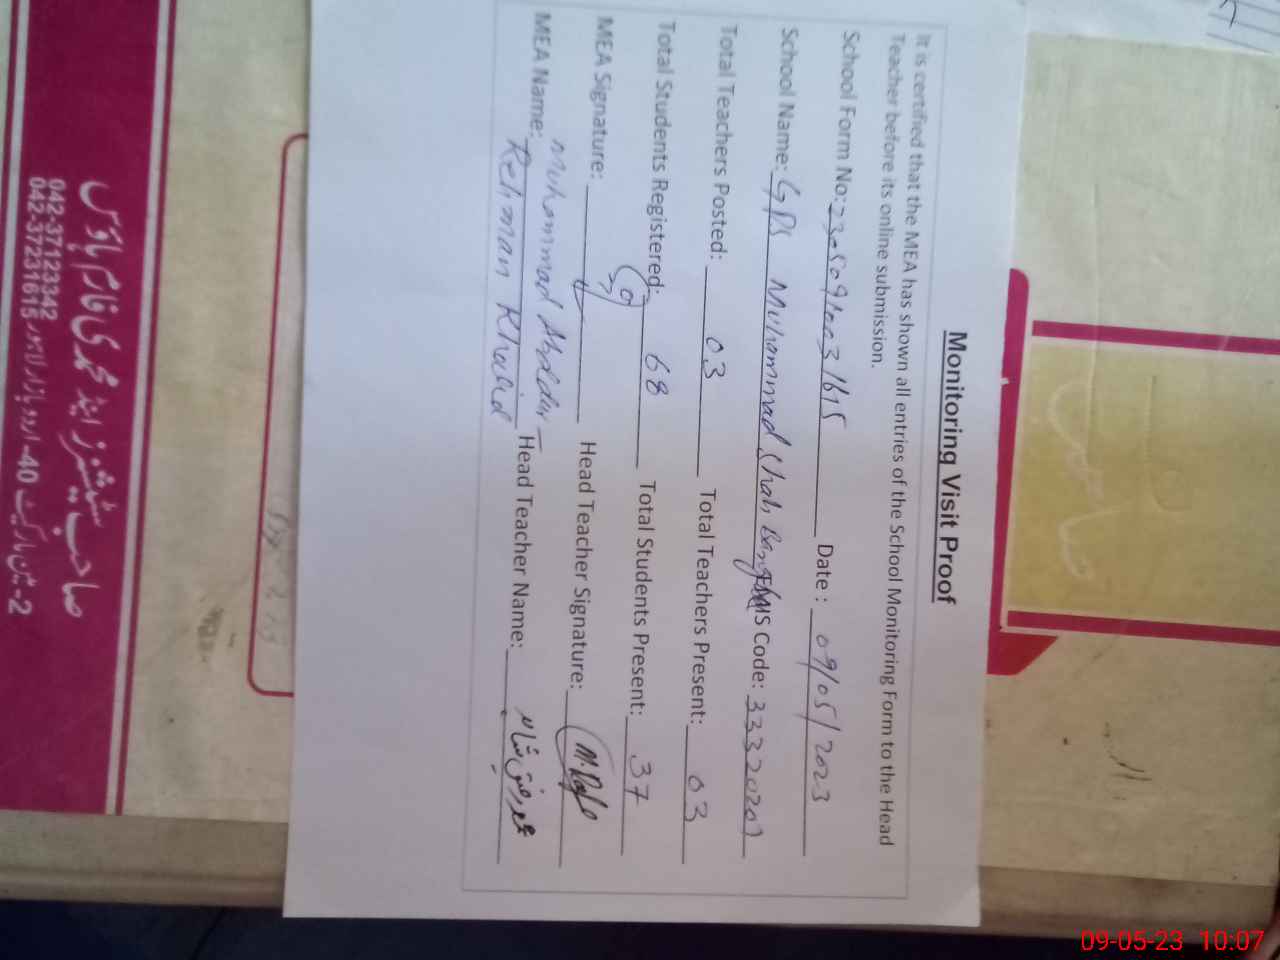 Monitoring Visit Proof
It is certified that the MEA has shown all entries of the School Monitoring Form to the Head
Teacher before its online submission.
School Form No: 23050910031615 Date : 09/05/2023
School Name: GPS Muhammad Shah EMIS Code: 33320207
Total Teachers Posted: 03 Total Teachers Present: 03
Total Students Registered: 68 Total Students Present: 37
MEA Signature: Head Teacher Signature:
MEA Name: Muhammad Abdur Rehman Khalid Head Teacher Name:
042-37123342
042-37231615
09-05-23 10:07